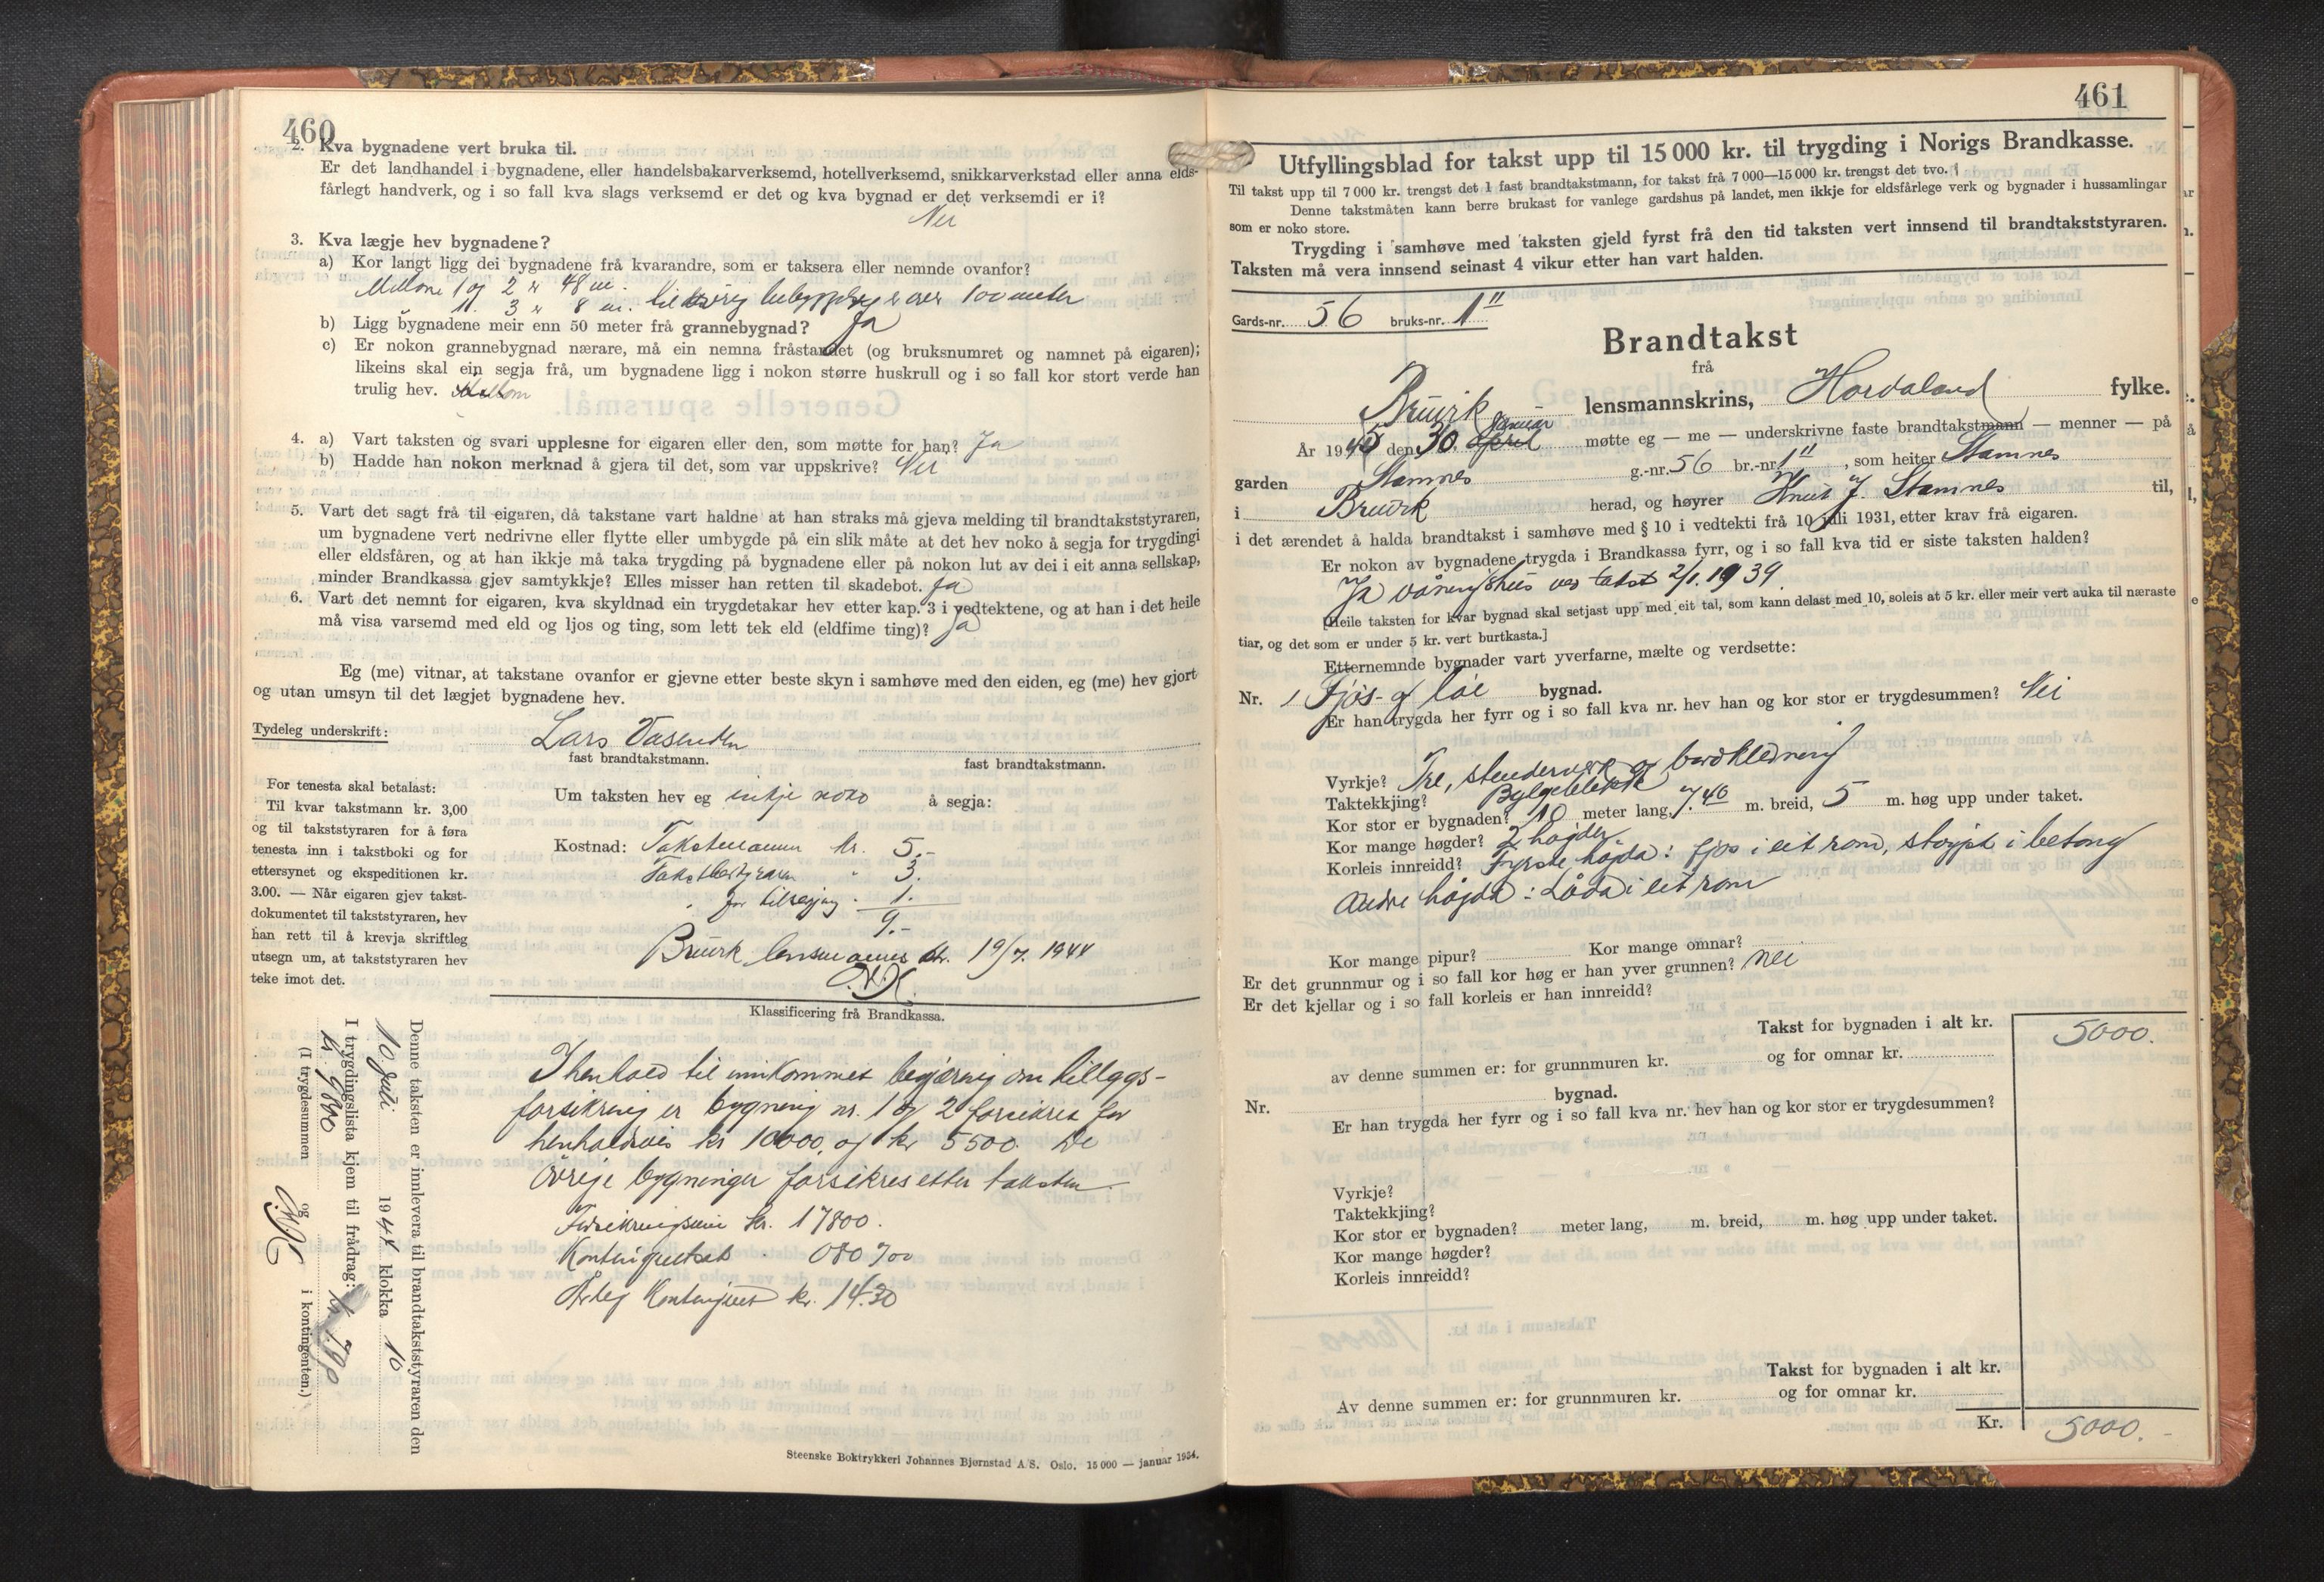 460
2. Kva bygnadene vert bruka til.
Er det landhandel i bygnadene, eller handelsbakarverksemd, hotellverksemd, snikkarverkstad eller anna elds-
fårlegt handverk, og i so fall kva slags verksemd er det og kva bygnad er det verksemdi er i?
Nei
3. Kva lægje hev bygnadene?
a) Kor langt ligg dei bygnadene frå kvarandre, som er taksera eller nemnde ovanfor?
Millom 1 og 2 er 48 m.
11. 3 er 8 m. til øvrig bebyggelse er over 100 meter
b) Ligg bygnadene meir enn 50 meter frå grannebygnad? Ja
c) Er nokon grannebygnad nærare, må ein nemna fråstandet (og bruksnumret og namnet på eigaren);
likeins skal ein segja frå, um bygnadene ligg i nokon større huskrull og i so fall kor stort verde han
trulig hev.
4. a) Vart taksten og svari upplesne for eigaren eller den, som møtte for han? Ja
b) Hadde han nokon merknad å gjera til det, som var uppskrive? Nei
5. Vart det sagt frå til eigaren, då takstane vart haldne at han straks må gjeva melding til brandtakststyraren,
um bygnadene vert nedrivne eller flytte eller umbygde på ein slik måte at det hev noko å segja for trygdingi
eller eldsfåren, og at han ikkje må taka trygding på bygnadene eller på nokon lut av dei i eit anna sellskap,
minder Brandkassa gjev samtykkje? Elles misser han retten til skadebot. Ja
6. Vart det nemnt for eigaren, kva skyldnad ein trygdetakar hev etter kap. 3 i vedtektene, og at han i det heile
må visa varsemd med eld og ljos og ting, som lett tek eld (eldfime ting)? Ja
Eg (me) vitnar, at takstane ovanfor er gjevne etter beste skyn i samhøve med den eiden, eg (me) hev gjort
og utan umsyn til det lægjet bygnadene hev.
Tydeleg underskrift: Lars Vasenden
fast brandtakstmann. fast brandtakstmann.
For tenesta skal betalast:
Til kvar takstmann kr. 3,00
og til takststyraren for å føra
tenesta inn i takstboki og for
ettersynet og ekspeditionen kr.
3.00. — Når eigaren gjev takst-
dokumentet til takststyraren, hev
han rett til å krevja skriftleg
utsegn um, at takststyraren hev
teke imot det.
Um taksten hev eg inkje noko å segja:
Kostnad: Takstmannen kr. 5.-
Takstbestyraren " 3.
" for tilsegjing " 1.
9.-
Bruvik lensmannsktr. 19/7. 1944
Klassificering frå Brandkassa.
I henhold til innkommet begjæring om tilleggs-
forsikring er bygning nr. 1 og 2 forsikret for
henholdsvis kr 10000, og kr 5500. De
øvrige bygninger forsikres etter taksten.
Forsikringssum kr. 17800.
Kontingentsats . 080 700
Årleg Kontingent kr. 14.30
Denne taksten er innlevera til brandtakststyraren den
10 juli 1944 klokka 10
I trygdingslista kjem til frådrag:
(I trygdesummen og i kontingenten.)
Steenske Boktrykkeri Johannes Bjørnstad A/S. Oslo. 15 000 — januar 1934.
461
Utfyllingsblad for takst upp til 15 000 kr. til trygding i Norigs Brandkasse.
Til takst upp til 7 000 kr. trengst det 1 fast brandtakstmann, for takst frå 7 000—15 000 kr. trengst det tvo.
Denne takstmåten kann berre brukast for vanlege gardshus på landet, men ikkje for eldsfårlege verk og bygnader i hussamlingar
som er noko store.
Trygding i samhøve med taksten gjeld fyrst frå den tid taksten vert innsend til brandtakststyraren.
Taksten må vera innsend seinast 4 vikur etter han vart halden.
Gards-nr. 56 bruks-nr. 1"
Brandtakst
frå
Bruvik lensmannskrins, Hordaland fylke.
januar
År 1945 den 30. april møtte eg — me — underskrivne faste brandtakstmann — menner — på
garden Stamnes g.-nr. 56 br.-nr. 1", som heiter Stamnes
i Bruvik herad, og høyrer Knut J. Stamnes til,
i det ærendet å halda brandtakst i samhøve med § 10 i vedtekti frå 10 juli 1931, etter krav frå eigaren.
Er nokon av bygnadene trygda i Brandkassa fyrr, og i so fall kva tid er siste taksten halden?
Ja våningshus ved takst 2/1. 1939.
[Heile taksten for kvar bygnad skal setjast upp med eit tal, som kann delast med 10, soleis at 5 kr. eller meir vert auka til næraste
tiar, og det som er under 5 kr. vert burtkasta.]
Etternemnde bygnader vart yverfarne, mælte og verdsette:
Nr. 1 Fjøs- og løe bygnad.
Er han trygda her fyrr og i so fall kva nr. hev han og kor stor er trygdesummen? Nei
Vyrkje? Tre, stenderverk og bordkledning
Taktekkjing? Bylgeblekk
Kor stor er bygnaden? 10 meter lang, 7.40 m. breid, 5 m. høg upp under taket.
Kor mange høgder? 2 høgder
Korleis innreidd? Fyrste høgda: fjøs i eit rom, støypt i betong
Andre høgda: Løda i eit rom
Kor mange pipur? Kor mange omnar?
Er det grunnmur og i so fall kor høg er han yver grunnen? nei
Er det kjellar og i so fall korleis er han innreidd?
Takst for bygnaden i alt kr. 5000.
av denne summen er: for grunnmuren kr. og for omnar kr.
Nr. bygnad.
Er han trygda her fyrr og i so fall kva nr. hev han og kor stor er trygdesummen?
Vyrkje?
Taktekkjing?
Kor stor er bygnaden? meter lang, m. breid, m. høg upp under taket.
Kor mange høgder?
Korleis innreidd?
Takst for bygnaden i alt kr.
Av denne summen er: for grunnmuren kr. og for omnar kr.
Kr. 5000.-